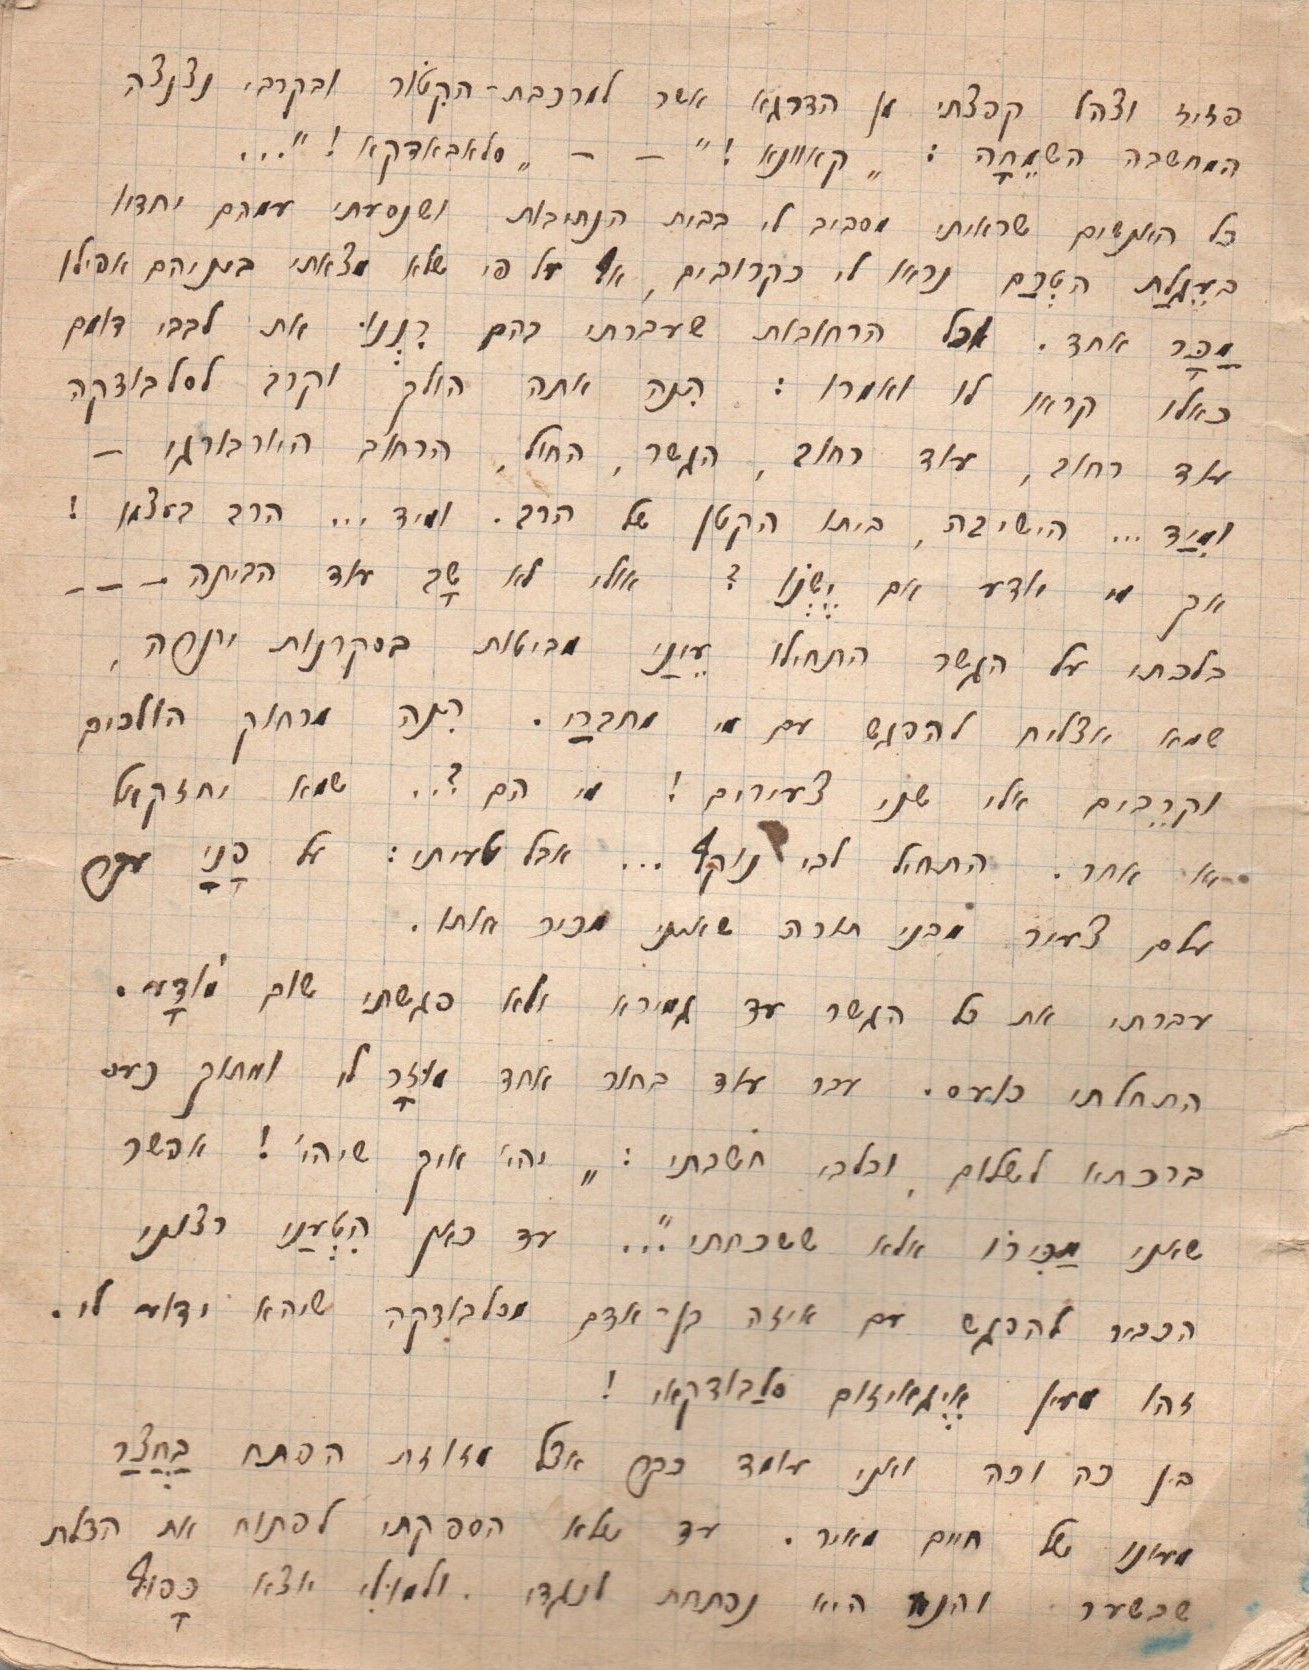 פזיז וצהל קפצתי מן הדרגא אשר למרכבת-הקטור ובקרבי נצנצה
המחשבה השמֵחָה : „קאוונא !" – – „סלאבאדקא ! "...
כל האנשים שראיתי מסביב לי בבית הנתיבות ושנסעתי עמהם יחדיו
בעֶגלַת הטְרַם נראו לי כקרובים, אף על פי שלא מצאתי ביניהם אפילו
מַכָּר אחד. וכל הרחובות שעברתי בהם רִנְנוּ את לבבי דומם
כאלו קראו לו ואמרו : הִנה אתה הולך וקרב לסלבודקה
עוד רחוב, עוד רחוב, הגשר, החול, הרחוב היורבורגי –
ומִיַד ... הישיבה, ביתו הקטן של הרב. ומיד ... הרב בעצמו !
אך מי יודע אם יֶשְׁנוֹ ? אולי לא שָב עוד הביתה – – –
בלכתי על הגשר התחילו עֵינַי מביטות בסקרנות ,
שמא אצליח להפגש עם מי מחברַי. הִנה מרחוק הולכים
וקרֵבים אלי שני צעירים ! מי הם ?.. שמא יחזקאל
או אחר. התחיל לבי נוקף ... אבל טעיתי : על פָּנַי עבר
עלם צעיר מבני תורה שאיני מכיר אותו.
עברתי את כל הגשר עד גמירא ולא פגשתי שום מוֹדָע.
התחלתי כועס. עבר עוד בחור אחד מוּזָר לי ומתוך כעס
ברכתיו לשלום, ובלבי חשבתי : „יהי' איך שיהי' ! אפשר
שאיני מַכִּירוֹ אלא ששכחתי"... עד כאן הִטְעַנִי רצוני
הכביר להפגש עם איזה בן-אדם מסלבודקה שיהא ידוע לי.
זהו מעין אֶיגאיזום סלַבודקאי !
בין כה וכה ואני עומד כבר אצל מזוזת הפתח בַּחֲצַר
מעונו של חיים מאיר. עד שלא הספקתי לפתוח את הדלת
שבשער והנה היא נפתחת לנגדי. ולמוּלִי יוצא כָּפוּף